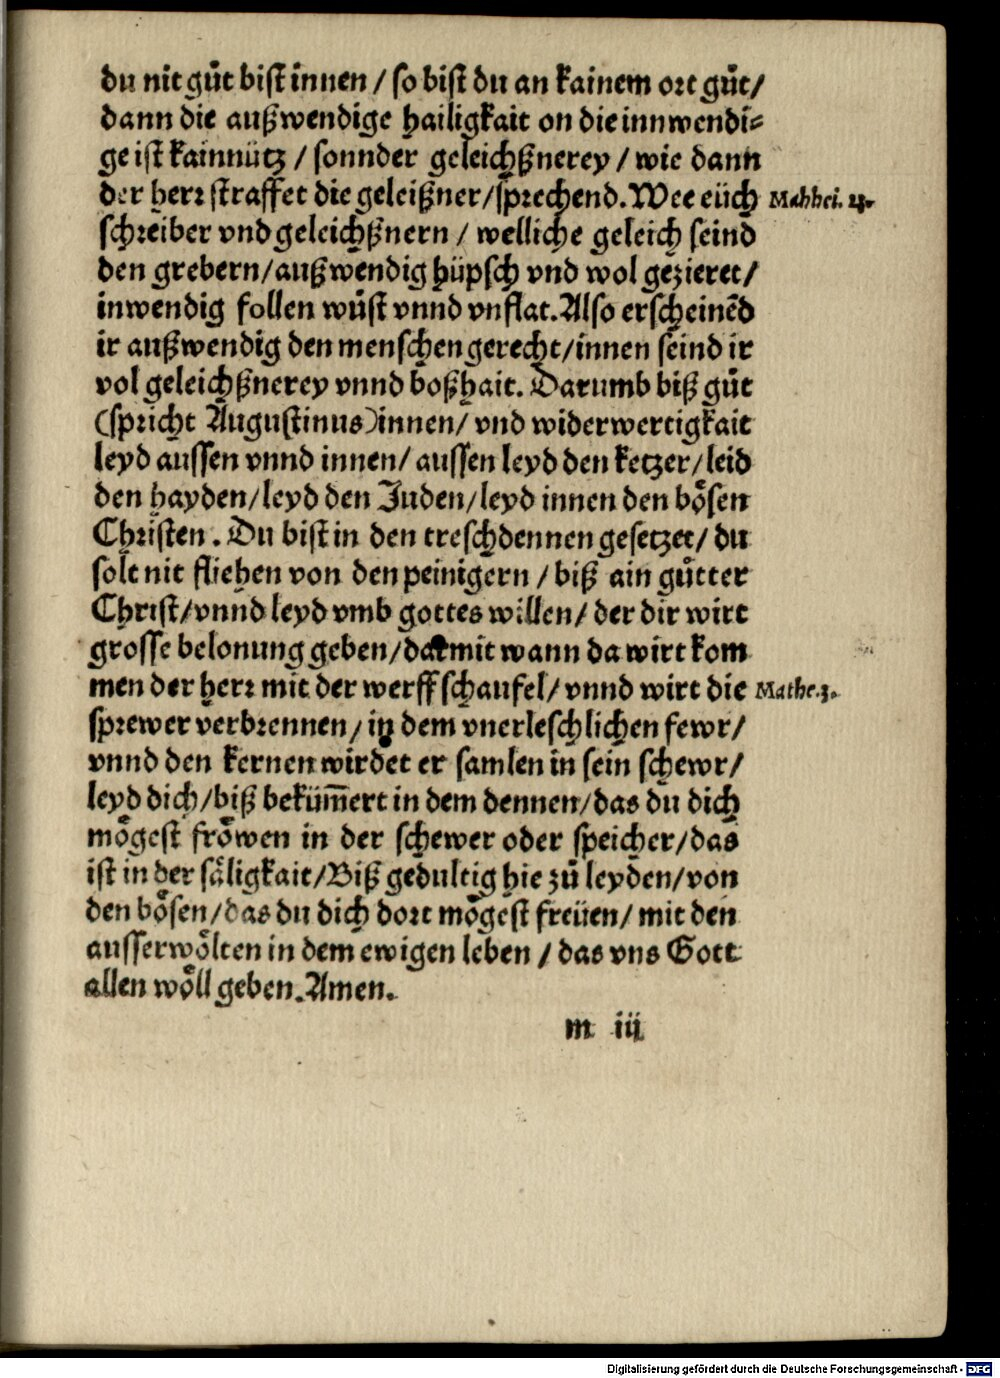 du nit gůt bist innen / so bist du an kainem ort gůt/
dann die außwendige hailigkait on die innwendi⸗
ge ist kainnütz / sonnder geleichßnerey / wie dann
der herr straffet die geleißner/sprechend. Wee eüch
schreiber vnd geleichßnern / welliche geleich seind
den grebern/außwendig hüpsch vnd wol gezieret/
inwendig follen wůst vnnd vnflat. Also erscheinēd
ir außwendig den menschen gerecht/innen seind ir
vol geleichßnerey vnnd boßhait. Darumb biß gůt
(spricht Augustinus)innen/ vnd widerwertigkait
leyd aussen vnnd innen/ aussen leyd den ketzer/leid
den hayden/leyd den Juden/leyd innen den boͤsen
Christen . Du bist in den treschdennen gesetzet/ du
solt nit fliehen von den peinigern / biß ain gůtter
Christ/vnnd leyd vmb gottes willen/ der dir wirt
grosse belonung geben/damit wann da wirt kom
men der herr mit der werffschaufel/vnnd wirt die
Mathe.3.
sprewer verbrennen/ in dem vnerleschlichen fewr/
vnnd den kernen wirdet er samlen in sein schewr/
leyd dich/biß beküm̄ert in dem dennen/das du dich
moͤgest froͤwen in der schewer oder speicher/das
ist in der saͤligkait/Biß gedultig hie zů leyden/von
den boͤsen/das du dich dort moͤgest freüen/ mit den
ausserwoͤlten in dem ewigen leben / das vns Gott
allen woͤll geben. Amen.
m iii
Digitalisierung gefördert durch die Deutsche Forschungsgemeinschaft - DFG